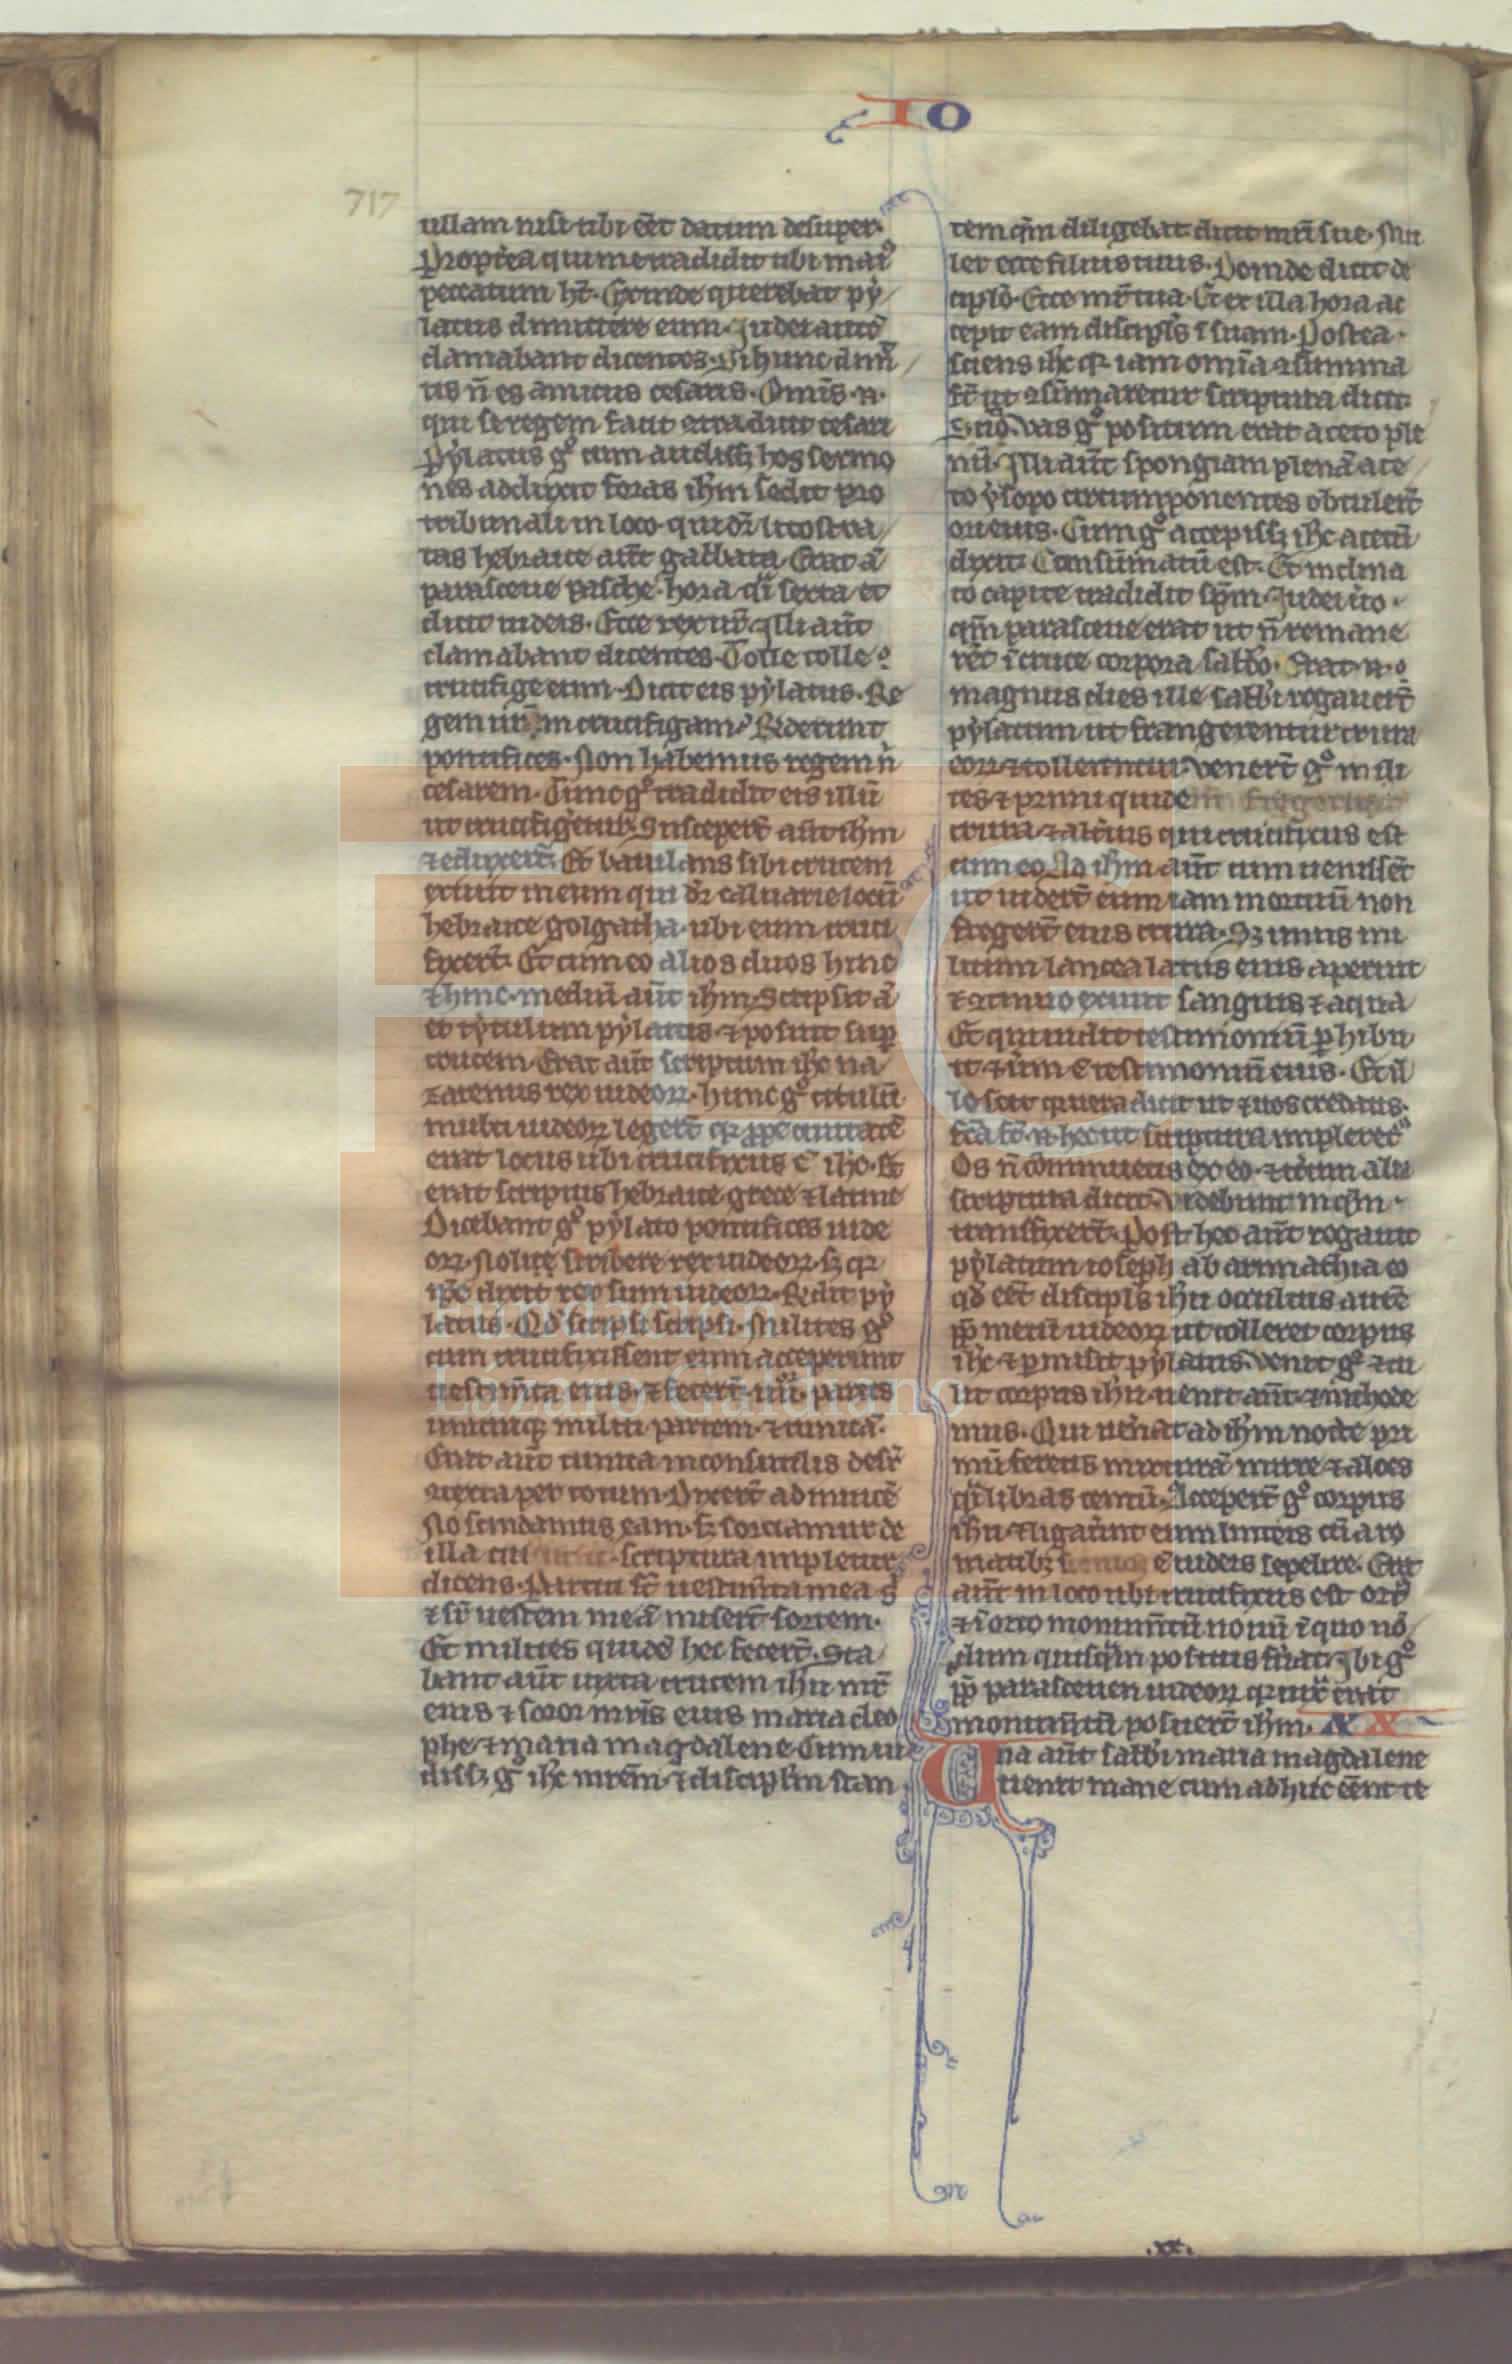 IO
717
ullam nisi tibi eēt datum desuper.
Propt̄ea qui me tradidit tibi maiꝰ
peccatum hт̄. Exinde querebat py
latus dimittere eum. Iudei autē
clamabant dicentes. Si hunc dimit̄
tis n̄ es amicus cesaris. Omīs .n.
qui se regem facit ɔtradicit cesari
Pylatus gͦ cum audissꝫ hos sermo
nes adduxit foras ih̄m ⁊ sedit pro
tribunali in loco qui dr̄ licostra
tas hebraice aūt gabbata. Erat ā
parasceue pasche hora qͣi sexta et
dicit iudeis. Ecce rex ur̄. Illi aūt
clamabant dicentes. Tolle tolle
crucifige eum. Dicit eis pylatus. Re
gem ur̄m crucifigam? Rñderunt
pontifices. Non habemus regem n̄
cesarem. Tunc gͦ tradidit eis illū
ut crucifigetur. Susceper̄t aūt ih̄m
⁊ eduxer̄t. Et baiulans sibi crucem
exiuit in eum qui dr̄ caluarie locū
hebraice golgatha. ubi eum cruci
fixer̄t. Et cum eo alios duos hinc
⁊ hinc. mediū aūt ih̄m. Scripsit ā
et tytulum pylatus. ⁊ posuit sup̄
crucem. Erat aūt scriptum ih̄c na
zarenus rex iudeoꝝ. hunc gͦ titulū
multi iudeoꝝ leger̄t qꝛ ꝓpe ciuitatē
erat locus ubi crucifixus ē ih̄c. Et
erat scriptus hebraice grece ⁊ latine
Dicebant gͦ pylato pontifices iude
oꝝ. Noli scribere rex iudeoꝝ. sꝫ qꝛ
ip̄e dixit rex sum iudeoꝝ. Rñdit py
latus. Qd̄ scripsi scripsi. Milites gͦ
cum crucifixissent eum acceperunt
uestim̄ta eius. ⁊ fecer̄t .iiii. partes
unicuiqꝫ militi partem. ⁊ tunicā.
Erat aūt tunica inconsutilis desuꝑ
ɔtexta per totum. Dixer̄t ad inuicē
No scindamus eam. sꝫ sorciamur de
illa cui scriptura impleatur
dicens. Partiti st̄ uestim̄ta mea
⁊ sr̄ uestem meā miser̄t sortem.
Et milites quidē hec fecer̄t. Sta
bant aūt iuxta crucem ih̄u mr̄
eius ⁊ soror mr̄is eius maria cleo
phe ⁊ maria magdalene. Cum ui
dissꝫ gͦ ih̄c matrem ⁊ discipl̄m stan
tem qm̄ diligebat dicit mr̄i sue. Mu
lier ecce filius tuus. Deinde dicit di
cipl̄o. Ecce mr̄ tua. Et ex illa hora ac
cepit eam discipl̄s ī suam. Postea
sciens ih̄c qꝛ iam omīa ɔsumma
st̄ ut ɔsūmaretur scriptura dicit.
Sitio. Vas gͦ positum erat aceto ple
nū. Illi aūt spongiam plenā ace
to ysopo circumponentes obtuler̄t
ori eius. Cum gͦ accepissꝫ ih̄c acetū
dixit. Consūmatū est. Et inclina
to capite tradidit sp̄m. Iudei ūo
qm̄ parasceue erat ut n̄ remane
rēt ī cruce corpora sabb̄o. Erat .n.
magnus dies ille sabb̄i rogauer̄t
pylatum ut frangerentur crura
eoꝝ ⁊ tollerentur. Vener̄t gͦ mili
tes ⁊ primi quidem fregerunt
crura ⁊ alterius qui crucifixus est
cum eo. Ad ih̄m aūt cum uenissēt
ut uider̄t eum iam mortuū non
freger̄t eius crura. Sꝫ unus mi
litum lancea latus eius aperuit
⁊ ɔtinuo exiuit sanguis ⁊ aqua
Et qui uidit testimoniū ꝑhibu
it ⁊ uerum ē testimoniū eius. Et il
le scit qꝛ uera dicit ut ⁊ uos credatis.
fc̄a st̄ .n. hec ut scriptura impleretᷣ
Os n̄ cōminuetis ex eo. ⁊ iterum alia
scriptura dicit. Videbunt in qm̄
transfixer̄t. Post hec aūt rogauit
pylatum ioseph ab arimathia eo
qd̄ eēt discipl̄s ih̄u occultus autē
ꝓp̄ metū iudeoꝝ ut tolleret corpus
ih̄c ⁊ ꝑmisit pylatus. Venit gͦ ⁊ tu
lit corpus ih̄u. uenit aūt ⁊ nichode
mus. Qui uenerat ad ih̄m nocte pri
mū ferens mixturā mirre ⁊ aloes
qͣi libras centū. Acceper̄t gͦ corpus
ih̄u ⁊ ligauer̄nt eum linteis cū aro
matibꝫ ē iudeis sepelire. Erat
aūt in loco ubi crucifixus est ortꝰ
⁊ ī orto monum̄tū nouū ī quo nō
dum quisqm̄ positus fuerat. Ibi gͦ
ꝓp̄ parasceuen iudeoꝝ qꝛ iuxͣ erat
monum̄tū posuer̄t ih̄m. XX
Una aūt sabb̄i maria magdalene
uenit mane cum adhuc eēnt te
.xx.
FLG
Fundación
Lázaro Galdiano